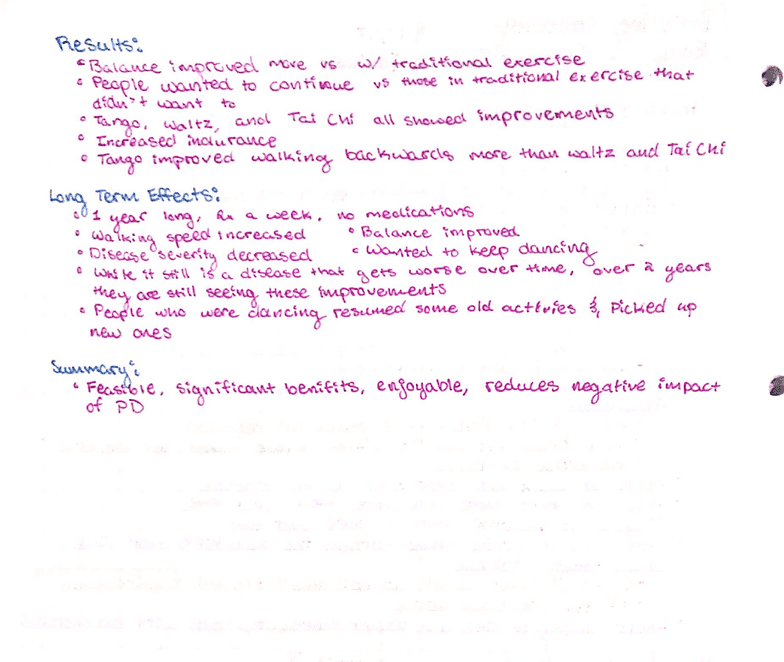 Results:
• Balance improved more vs w/ traditional exercise
• People wanted to continue vs those in traditional exercise that
didn't want to
• Tango, waltz, and Tai Chi all showed improvements
• Increased indurance
• Tango improved walking backwards more than waltz and Tai Chi
Long Term Effects:
• 1 year long, 2x a week, no medications
• Walking speed increased • Balance improved
• Disease severity decreased • Wanted to keep dancing
• While it still is a disease that gets worse over time, over 2 years
they are still seeing these improvements
• People who were dancing resumed some old activies & picked up
new ones
Summary:
• Feasible, significant benifits, enjoyable, reduces negative impact
of PD